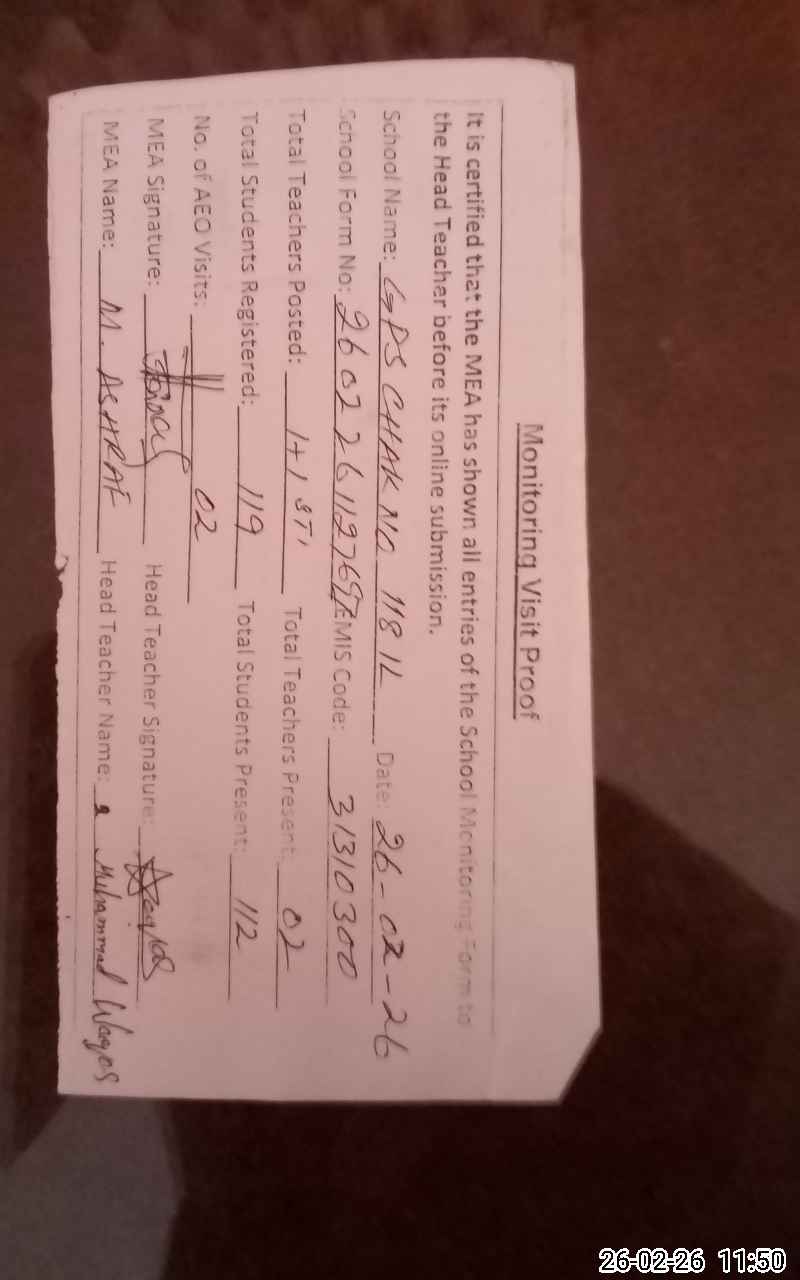 Monitoring Visit Proof
It is certified that the MEA has shown all entries of the School Monitoring Form to
the Head Teacher before its online submission.
School Name: GPS CHAK NO 118 1L Date: 26-02-26
School Form No: EMIS Code: 31310300
Total Teachers Posted: 1+1 STI Total Teachers Present: 02
Total Students Registered: 119 Total Students Present: 112
No. of AEO Visits: 02
MEA Signature: Head Teacher Signature:
MEA Name: M. ASHRAF Head Teacher Name: Muhammad Waqas
26-02-26 11:50